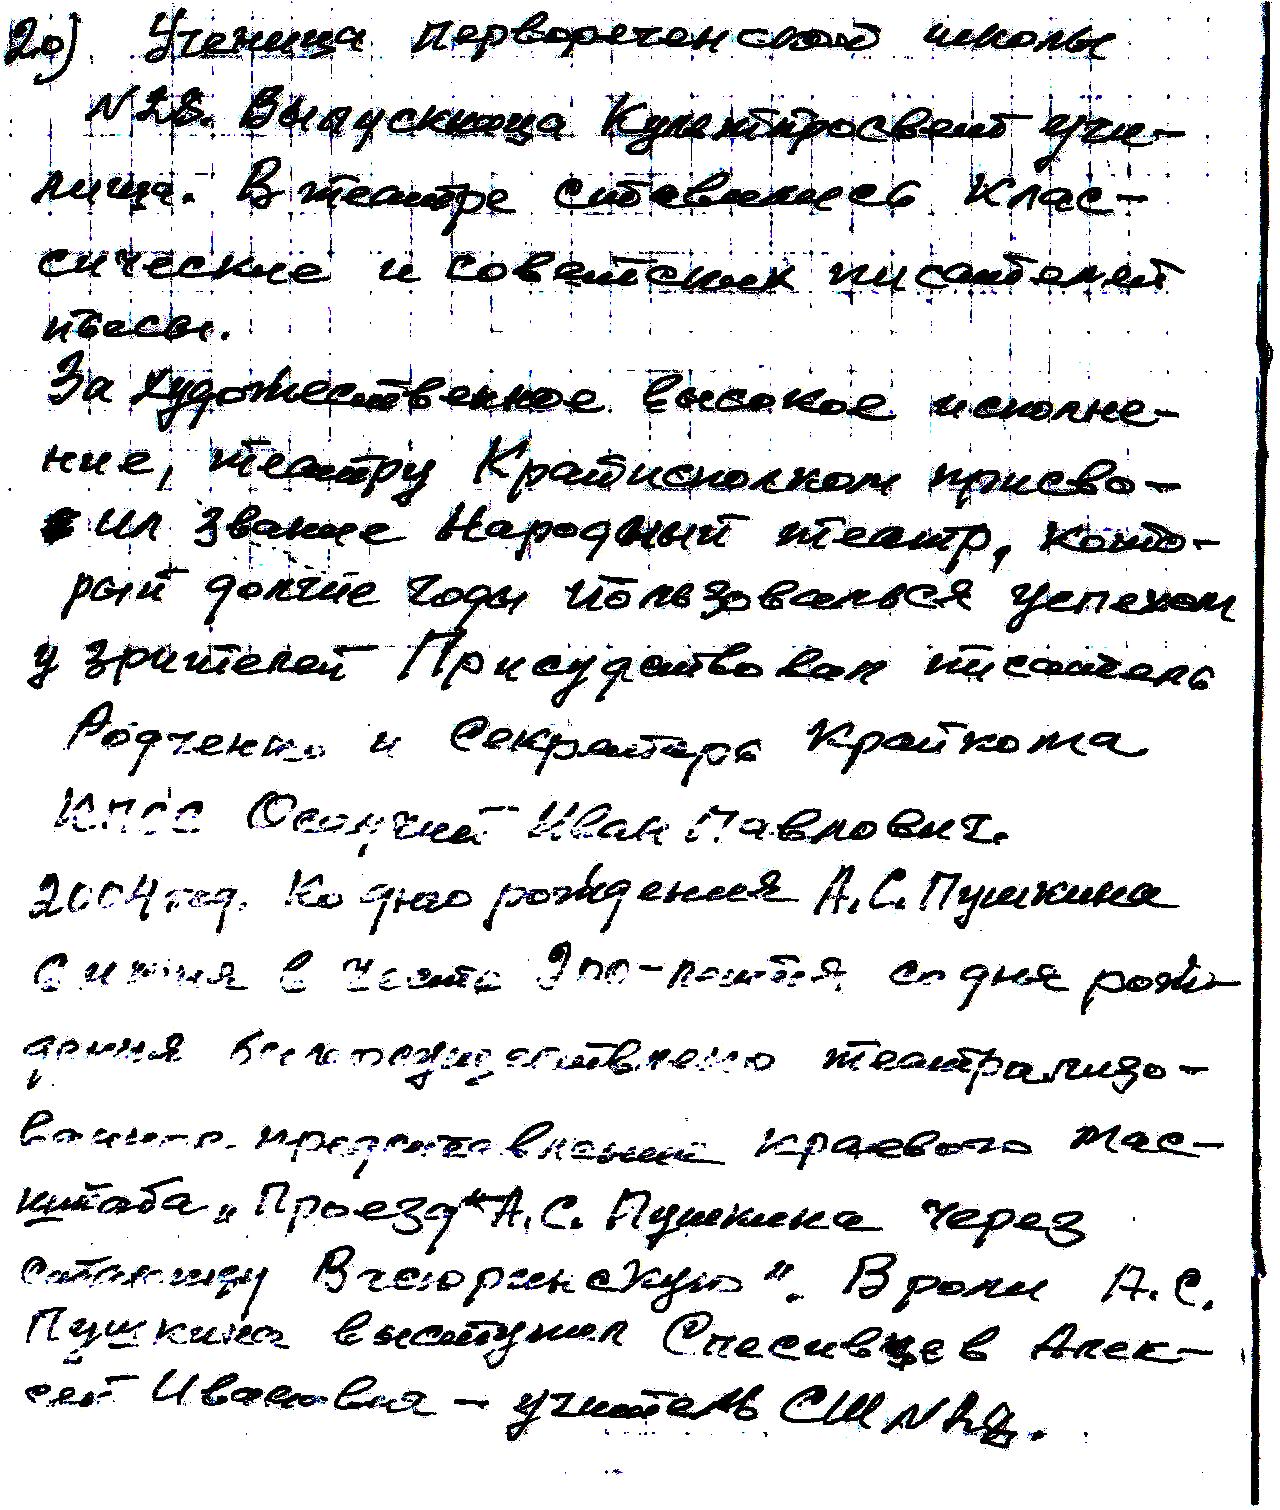 20) Ученица Перворечен ской школы
№28. Выпускница Культпросвет учи-
лища. В театре ставились клас-
сические и советских писателей
пьесы.
За художественное высокое исполне-
ние, театру Крайисполком присво-
ил звание Народный театр, кото-
рый долгие годы пользовалься успехом
у зрителей Присудствовал писатель
Родченко и Секретарь Крайкома
КПСС Осадчий Иван Павлович.
2004 год. Ко дню рождения А.С. Пушкина
6 июня в честь 200-летия со дня рож-
дения было осуществлено театрализо-
ванное представление краевого мас-
штаба „Проезд" А.С. Пушкина через
станицу Вчеоринскую". В роли А.С.
Пушкина выступил Спесивцев Алек-
сей Иванович – учитель СШ №28.